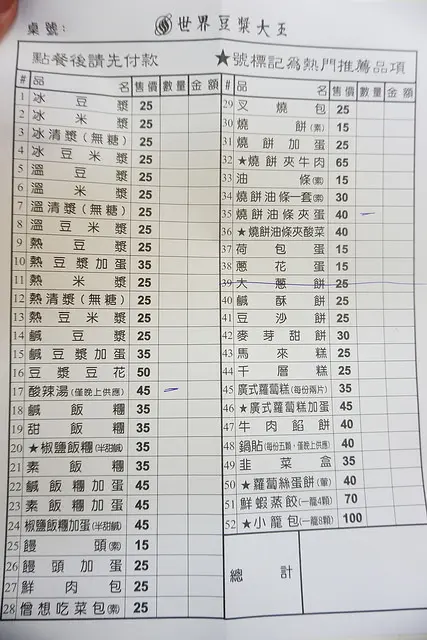 桌號： 世界豆漿大王
點餐後請先付款 ★號標記為熱門推薦品項
# 品名 售價 數量 金額
1 冰豆漿 25
2 冰米漿 25
3 冰清漿(無糖) 25
4 冰豆米漿 25
5 溫豆漿 25
6 溫米漿 25
7 溫清漿(無糖) 25
8 溫豆米漿 25
9 熱豆漿 25
10 熱豆漿加蛋 35
11 熱米漿 25
12 熱清漿(無糖) 25
13 熱豆米漿 25
14 鹹豆漿 25
15 鹹豆漿加蛋 35
16 豆漿豆花 50
17 酸辣湯(僅晚上供應) 45
18 鹹飯糰 35
19 甜飯糰 35
20 ★椒鹽飯糰(半甜鹹) 35
21 素飯糰 35
22 鹹飯糰加蛋 45
23 素飯糰加蛋 45
24 椒鹽飯糰加蛋(半甜鹹) 45
25 饅頭(素) 15
26 饅頭加蛋 25
27 鮮肉包 25
28 僧想吃菜包(素) 25
# 品名 售價 數量 金額
29 叉燒包 25
30 燒餅(素) 15
31 燒餅加蛋 25
32 ★燒餅夾牛肉 65
33 油條(素) 15
34 燒餅油條一套(素) 30
35 燒餅油條夾蛋 40
36 ★燒餅油條夾酸菜 40
37 荷包蛋 15
38 蔥花蛋 15
39 大蔥餅 25
40 鹹酥餅 25
41 豆沙餅 25
42 麥芽甜餅 30
43 馬來糕 25
44 千層糕 25
45 廣式蘿蔔糕(每份兩片) 35
46 ★廣式蘿蔔糕加蛋 45
47 牛肉餡餅 40
48 鍋貼(每份五顆．僅晚上供應) 40
49 韭菜盒 35
50 ★蘿蔔絲蛋餅(葷) 40
51 鮮蝦蒸餃(一籠4顆) 70
52 ★小籠包(一籠8顆) 100
總計